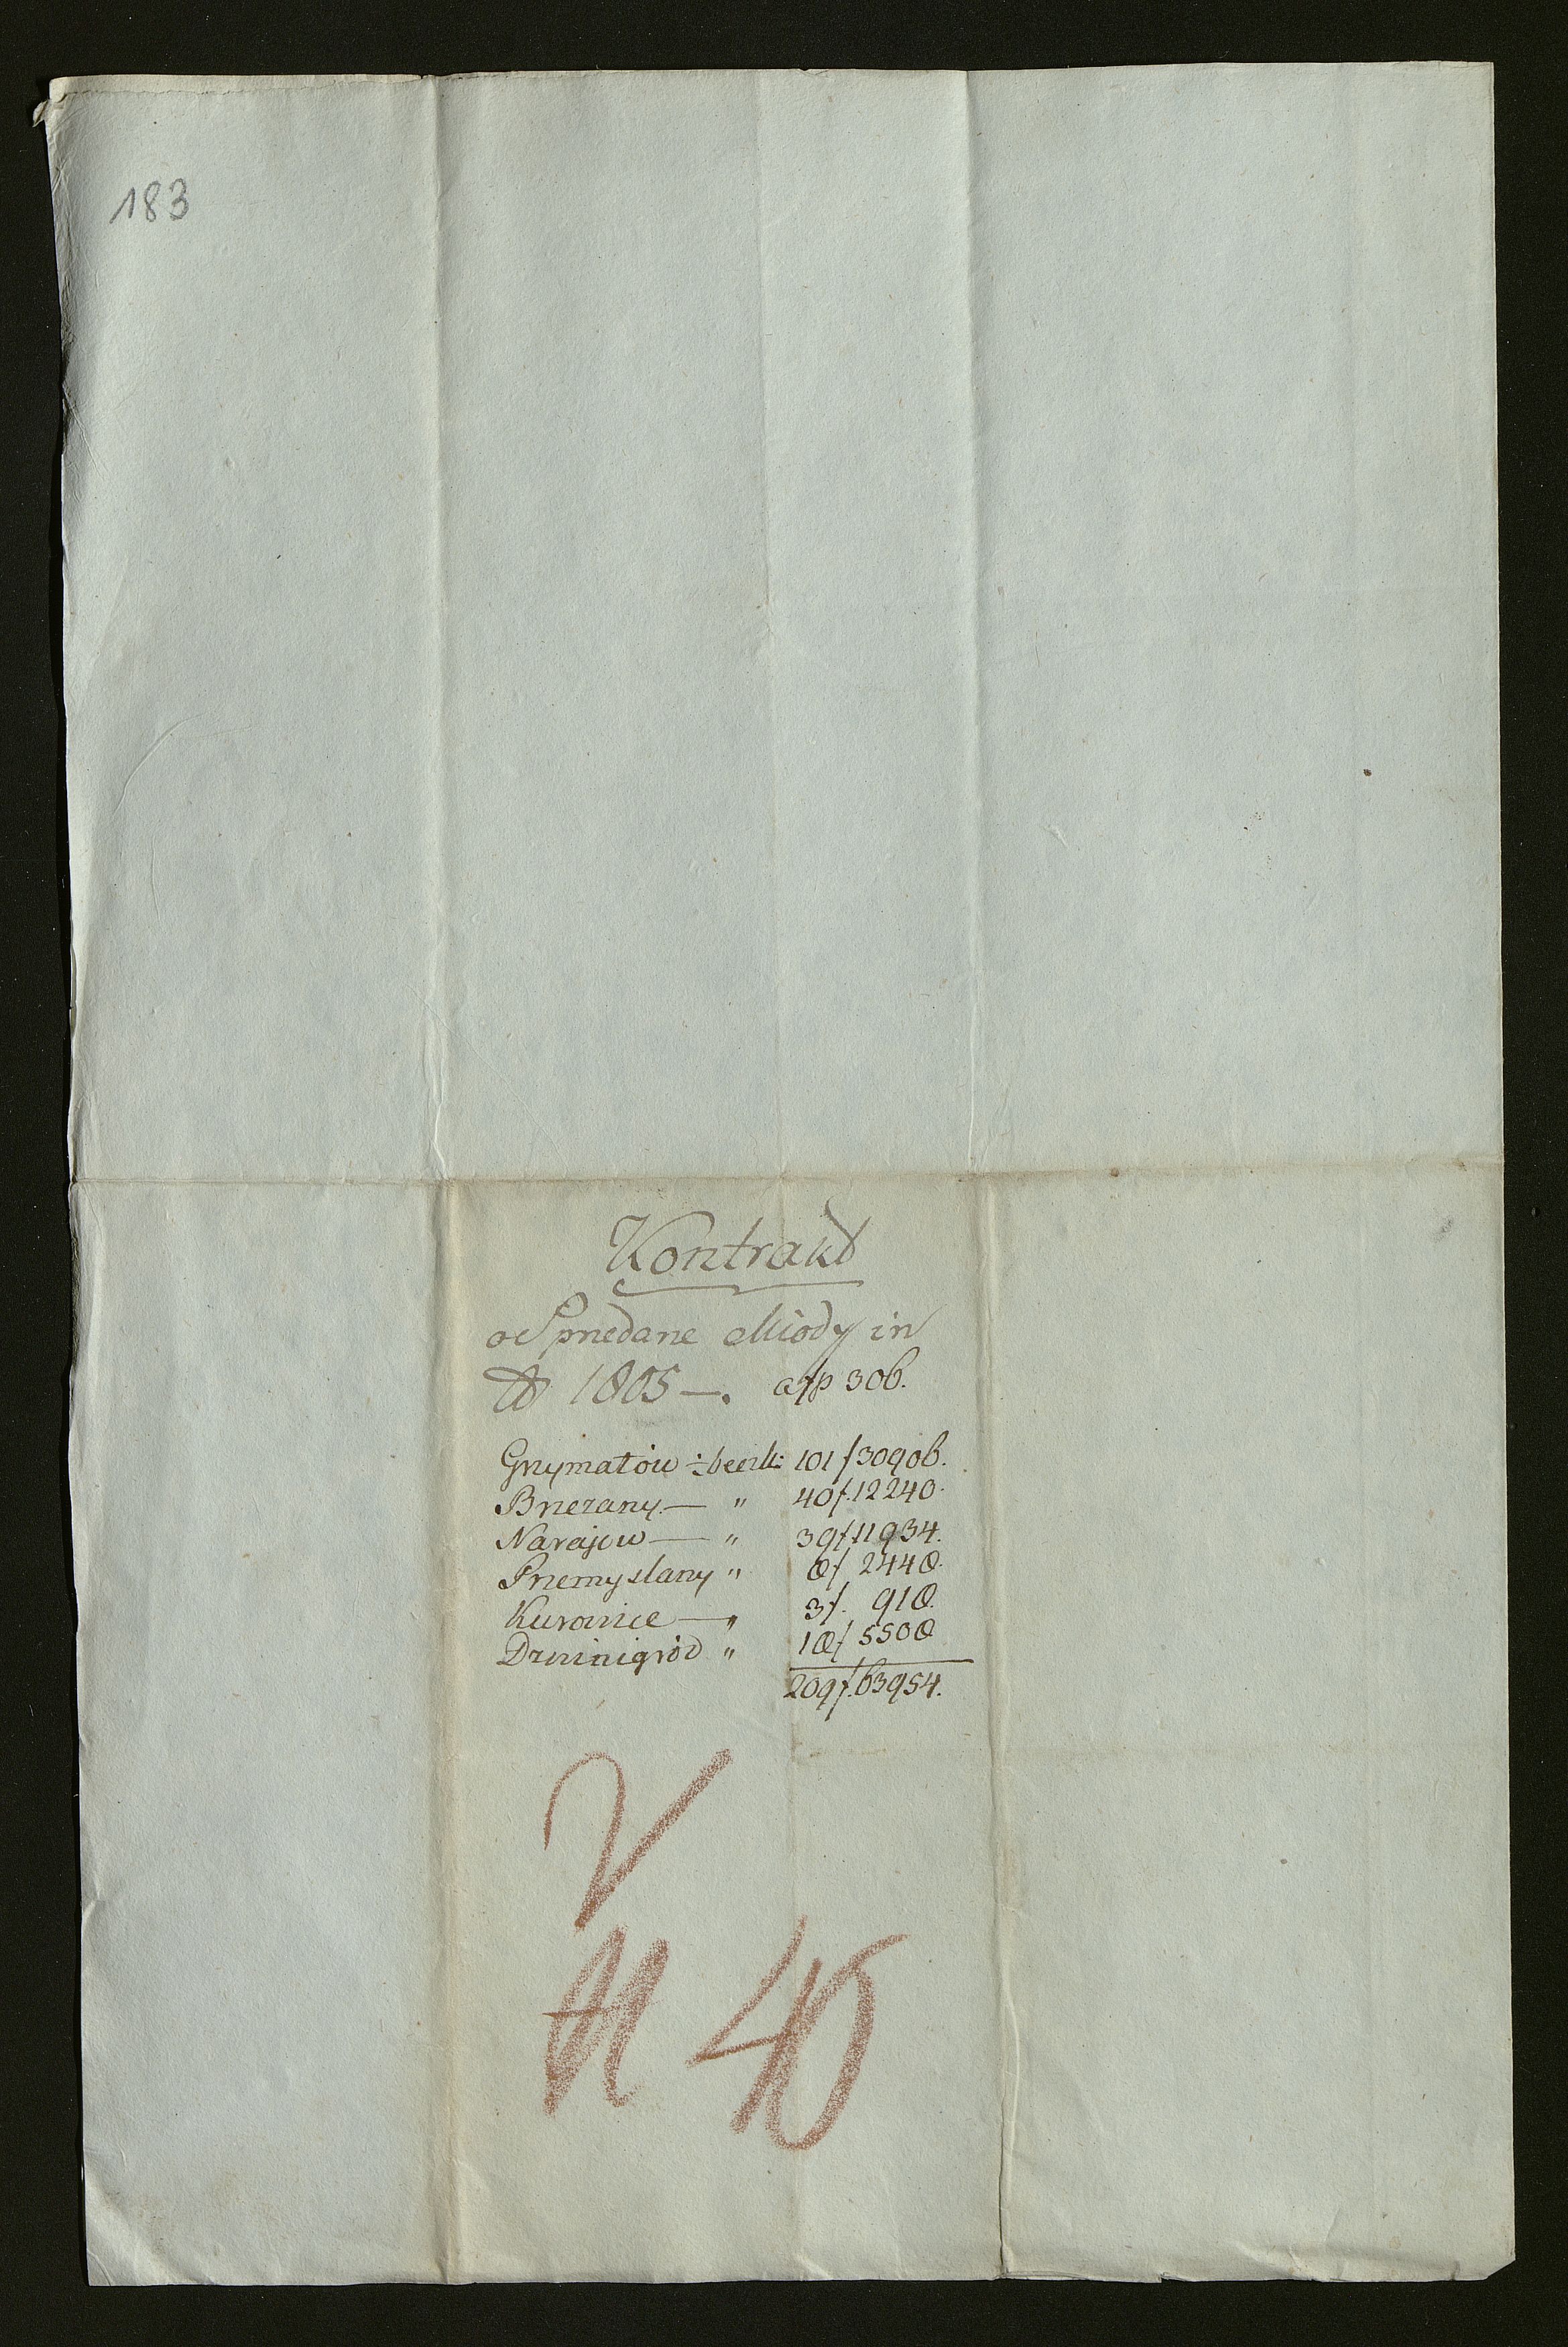 183
Kontrakt
o Sprzedane Miody in
Ao 1805 —. a fp 306.
Grzymałów ÷ beczk: 101 / 30906.
Brzezany — " 40 f. 12240.
Narajow — " 39 f 11934.
Przemyslany " 8 f 2448.
Kurowice — " 3 f. 918.
Dzwinigród " 18 f 5508
209 f. 63954.
V
N 40